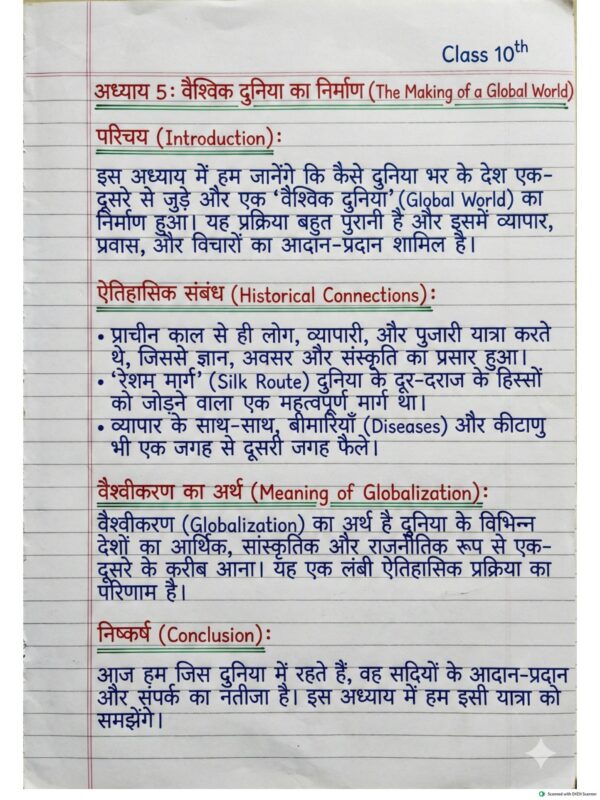 Class 10th
अध्याय 5: वैश्विक दुनिया का निर्माण (The Making of a Global World)
परिचय (Introduction):
इस अध्याय में हम जानेंगे कि कैसे दुनिया भर के देश एक-
दूसरे से जुड़े और एक ‘वैश्विक दुनिया’ (Global World) का
निर्माण हुआ। यह प्रक्रिया बहुत पुरानी है और इसमें व्यापार,
प्रवास, और विचारों का आदान-प्रदान शामिल है।
ऐतिहासिक संबंध (Historical Connections):
• प्राचीन काल से ही लोग, व्यापारी, और पुजारी यात्रा करते
थे, जिससे ज्ञान, अवसर और संस्कृति का प्रसार हुआ।
• ‘रेशम मार्ग’ (Silk Route) दुनिया के दूर-दराज के हिस्सों
को जोड़ने वाला एक महत्वपूर्ण मार्ग था।
• व्यापार के साथ-साथ, बीमारियाँ (Diseases) और कीटाणु
भी एक जगह से दूसरी जगह फैले।
वैश्वीकरण का अर्थ (Meaning of Globalization):
वैश्वीकरण (Globalization) का अर्थ है दुनिया के विभिन्न
देशों का आर्थिक, सांस्कृतिक और राजनीतिक रूप से एक-
दूसरे के करीब आना। यह एक लंबी ऐतिहासिक प्रक्रिया का
परिणाम है।
निष्कर्ष (Conclusion):
आज हम जिस दुनिया में रहते हैं, वह सदियों के आदान-प्रदान
और संपर्क का नतीजा है। इस अध्याय में हम इसी यात्रा को
समझेंगे।
Scanned with OKEN Scanner